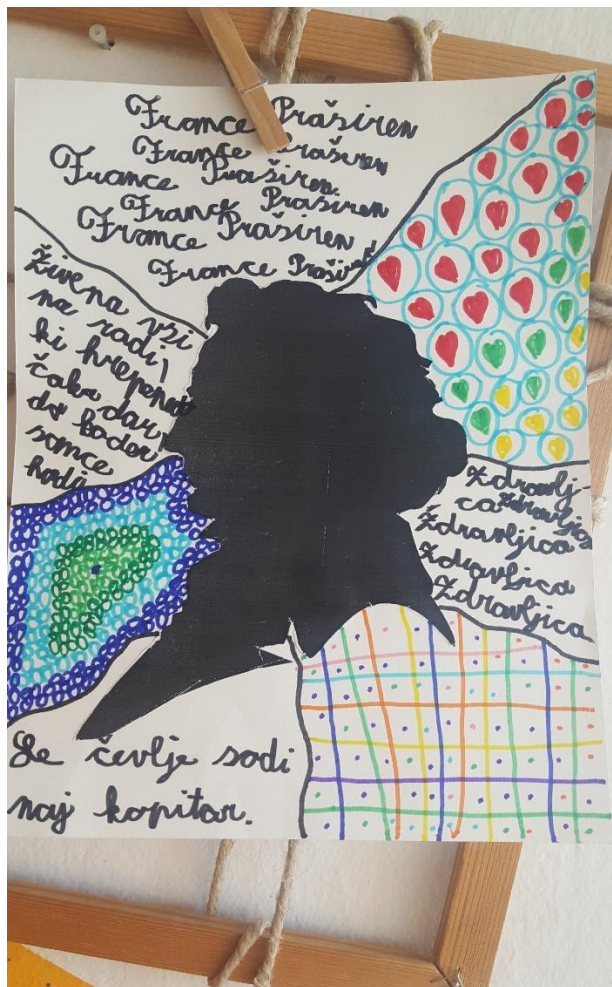 France Praširen
France Praširen
France Praširen
France Praširen
France Praširen
France Praširen
Žive na vsi
na radi
ki hrepene
čaka dar
do koder
somce
hodi
Zdravlj-
ca Zdravljica
Zdravljica
Zdravljica
Zdravljica
Le čevlje sodi
naj kopitar.